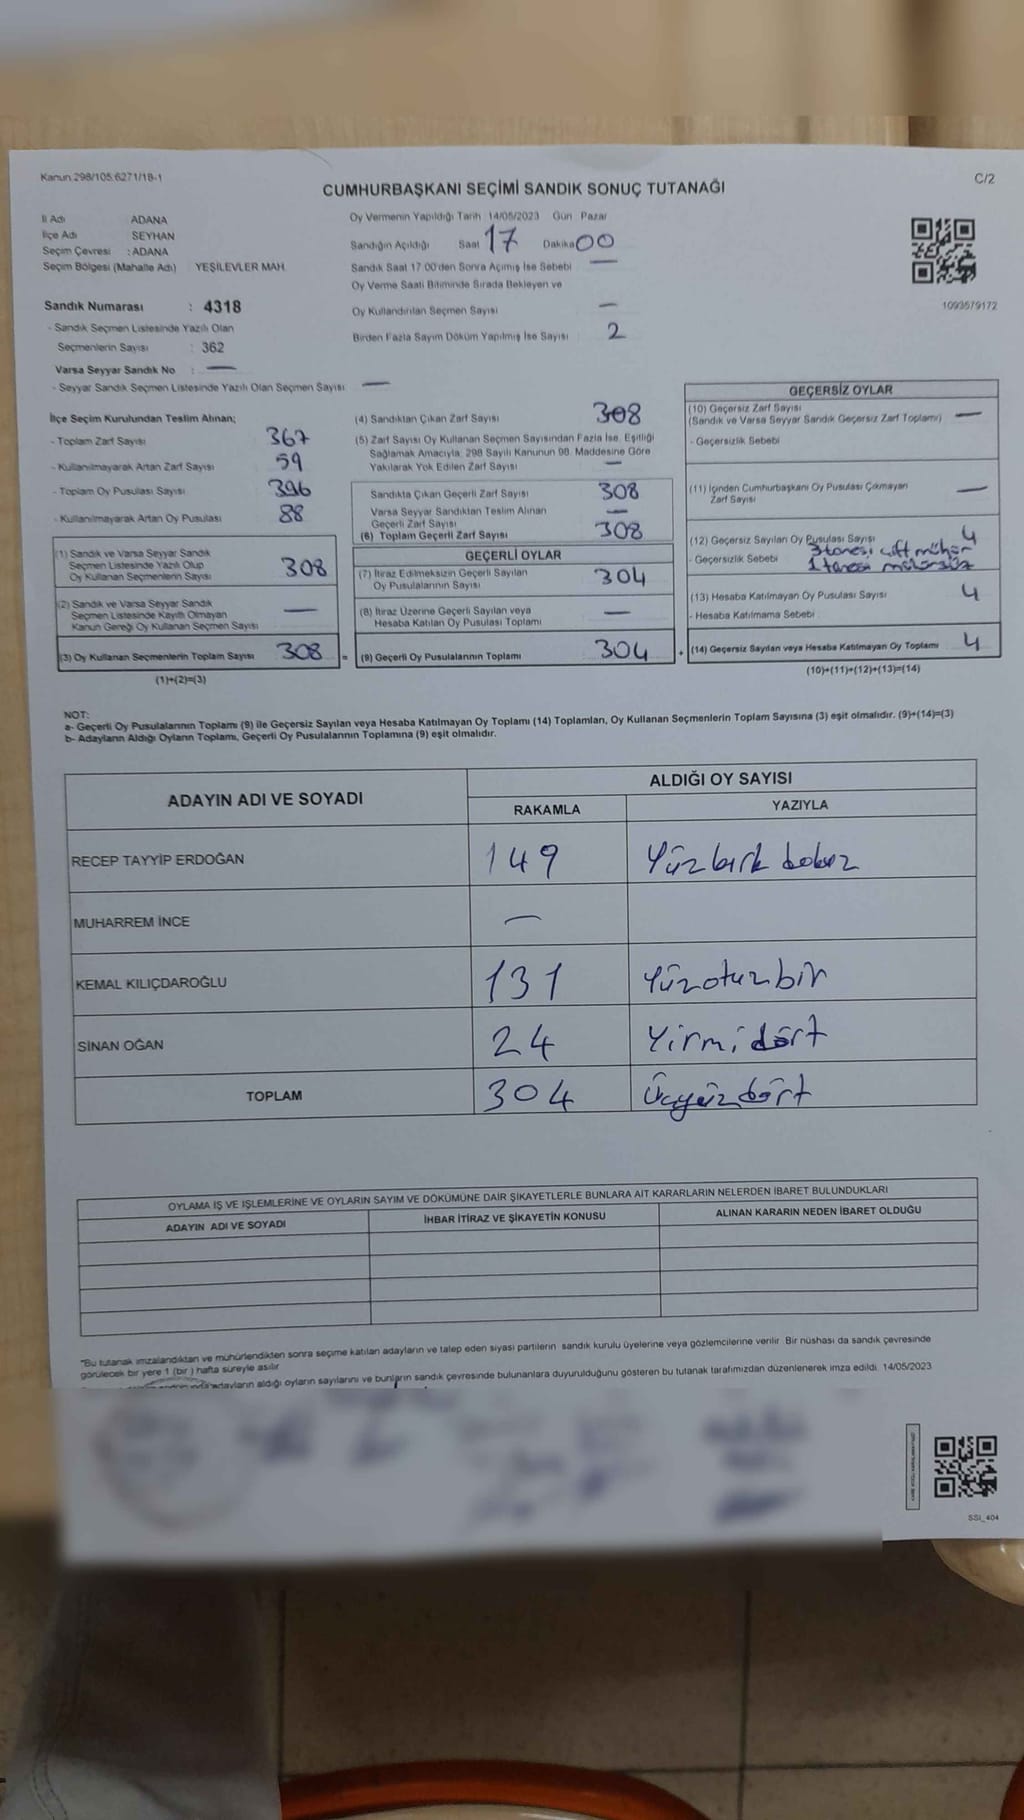 Kanun 298/105.6271/18-1
C/2
CUMHURBAŞKANI SEÇİMİ SANDIK SONUÇ TUTANAĞI
İl Adı ADANA
İlçe Adı SEYHAN
Seçim Çevresi : ADANA
Seçim Bölgesi (Mahalle Adı) : YEŞİLEVLER MAH.
Sandık Numarası : 4318
- Sandık Seçmen Listesinde Yazılı Olan
Seçmenlerin Sayısı : 362
Varsa Seyyar Sandık No : —
- Seyyar Sandık Seçmen Listesinde Yazılı Olan Seçmen Sayısı —
Oy Vermenin Yapıldığı Tarih 14/05/2023 Gün Pazar
Sandığın Açıldığı Saat 17 Dakika 00
Sandık Saat 17:00'den Sonra Açımış İse Sebebi —
Oy Verme Saati Bitiminde Sırada Bekleyen ve
Oy Kullandırılan Seçmen Sayısı —
Birden Fazla Sayım Döküm Yapılmış İse Sayısı 2
1093579172
İlçe Seçim Kurulundan Teslim Alınan;
- Toplam Zarf Sayısı 367
- Kullanılmayarak Artan Zarf Sayısı 59
- Toplam Oy Pusulası Sayısı 396
- Kullanılmayarak Artan Oy Pusulası 88
(1) Sandık ve Varsa Seyyar Sandık
Seçmen Listesinde Yazılı Olup
Oy Kullanan Seçmenlerin Sayısı 308
(2) Sandık ve Varsa Seyyar Sandık
Seçmen Listesinde Kayıtlı Olmayan
Kanun Gereği Oy Kullanan Seçmen Sayısı —
(3) Oy Kullanan Seçmenlerin Toplam Sayısı 308 =
(1)+(2)=(3)
(4) Sandıktan Çıkan Zarf Sayısı 308
(5) Zarf Sayısı Oy Kullanan Seçmen Sayısından Fazla İse, Eşitliği
Sağlamak Amacıyla, 298 Sayılı Kanunun 98. Maddesine Göre
Yakılarak Yok Edilen Zarf Sayısı —
Sandıkta Çıkan Geçerli Zarf Sayısı 308
Varsa Seyyar Sandıktan Teslim Alınan
Geçerli Zarf Sayısı —
(6) Toplam Geçerli Zarf Sayısı 308
GEÇERLİ OYLAR
(7) İtiraz Edilmeksizin Geçerli Sayılan
Oy Pusulalarının Sayısı 304
(8) İtiraz Üzerine Geçerli Sayılan veya
Hesaba Katılan Oy Pusulası Toplamı —
(9) Geçerli Oy Pusulalarının Toplamı 304 +
GEÇERSİZ OYLAR
(10) Geçersiz Zarf Sayısı
(Sandık ve Varsa Seyyar Sandık Geçersiz Zarf Toplamı) —
- Geçersizlik Sebebi
(11) İçinden Cumhurbaşkanı Oy Pusulası Çıkmayan
Zarf Sayısı —
(12) Geçersiz Sayılan Oy Pusulası Sayısı 4
- Geçersizlik Sebebi 3 tanesi çift mühür
1 tanesi mühürsüz
(13) Hesaba Katılmayan Oy Pusulası Sayısı 4
- Hesaba Katılmama Sebebi
(14) Geçersiz Sayılan veya Hesaba Katılmayan Oy Toplamı 4
(10)+(11)+(12)+(13)=(14)
NOT:
a- Geçerli Oy Pusulalarının Toplamı (9) ile Geçersiz Sayılan veya Hesaba Katılmayan Oy Toplamı (14) Toplamları, Oy Kullanan Seçmenlerin Toplam Sayısına (3) eşit olmalıdır. (9)+(14)=(3)
b- Adayların Aldığı Oyların Toplamı, Geçerli Oy Pusulalarının Toplamına (9) eşit olmalıdır.
ADAYIN ADI VE SOYADI ALDIĞI OY SAYISI
RAKAMLA YAZIYLA
RECEP TAYYİP ERDOĞAN 149 Yüzkırkdokuz
MUHARREM İNCE —
KEMAL KILIÇDAROĞLU 131 Yüzotuzbir
SİNAN OĞAN 24 Yirmidört
TOPLAM 304 Üçyüzdört
OYLAMA İŞ VE İŞLEMLERİNE VE OYLARIN SAYIM VE DÖKÜMÜNE DAİR ŞİKAYETLERLE BUNLARA AİT KARARLARIN NELERDEN İBARET BULUNDUKLARI
ADAYIN ADI VE SOYADI İHBAR İTİRAZ VE ŞİKAYETİN KONUSU ALINAN KARARIN NEDEN İBARET OLDUĞU
"Bu tutanak imzalandıktan ve mühürlendikten sonra seçime katılan adayların ve talep eden siyasi partilerin sandık kurulu üyelerine veya gözlemcilerine verilir. Bir nüshası da sandık çevresinde
görülecek bir yere 1 (bir) hafta süreyle asılır.
adayların aldığı oyların sayılarını ve bunların sandık çevresinde bulunanlara duyurulduğunu gösteren bu tutanak tarafımızdan düzenlenerek imza edildi. 14/05/2023
SSI_404